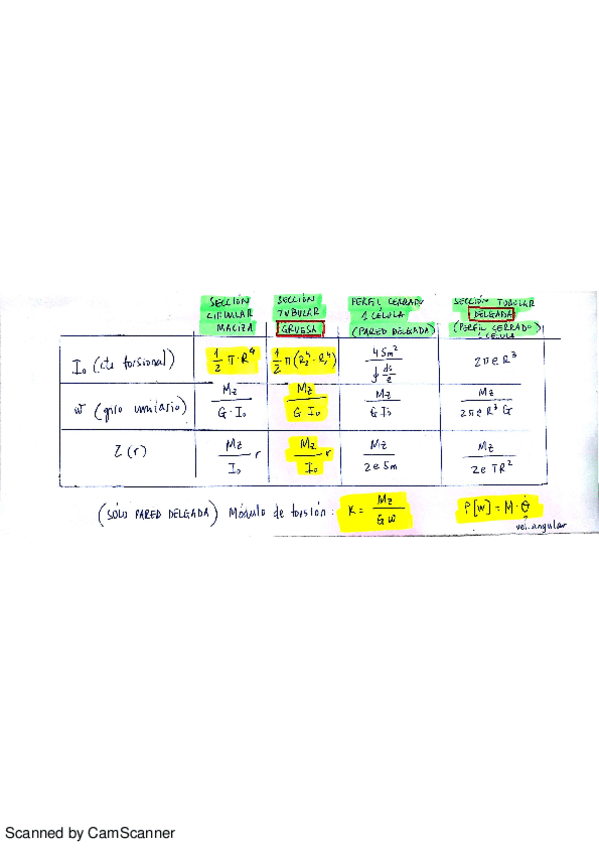 SECCIÓN CIRCULAR MACIZA
SECCIÓN TUBULAR GRUESA
PERFIL CERRADO 1 CÉLULA (PARED DELGADA)
SECCIÓN TUBULAR DELGADA (PERFIL CERRADO 1 CÉLULA
I₀ (cte torsional)
1/2 π·R⁴
1/2 π(R₂⁴-R₁⁴)
4Sm² / ∮ ds/e
2πeR³
ω (giro unitario)
Mz / G·I₀
Mz / G I₀
Mz / G I₀
Mz / 2πeR³G
τ(r)
Mz / I₀ r
Mz / I₀ r
Mz / 2eSm
Mz / 2eπR²
(SÓLO PARED DELGADA) Módulo de torsión: K = Mz / Gω
P[W] = M·θ̇
vel. angular
Scanned by CamScanner